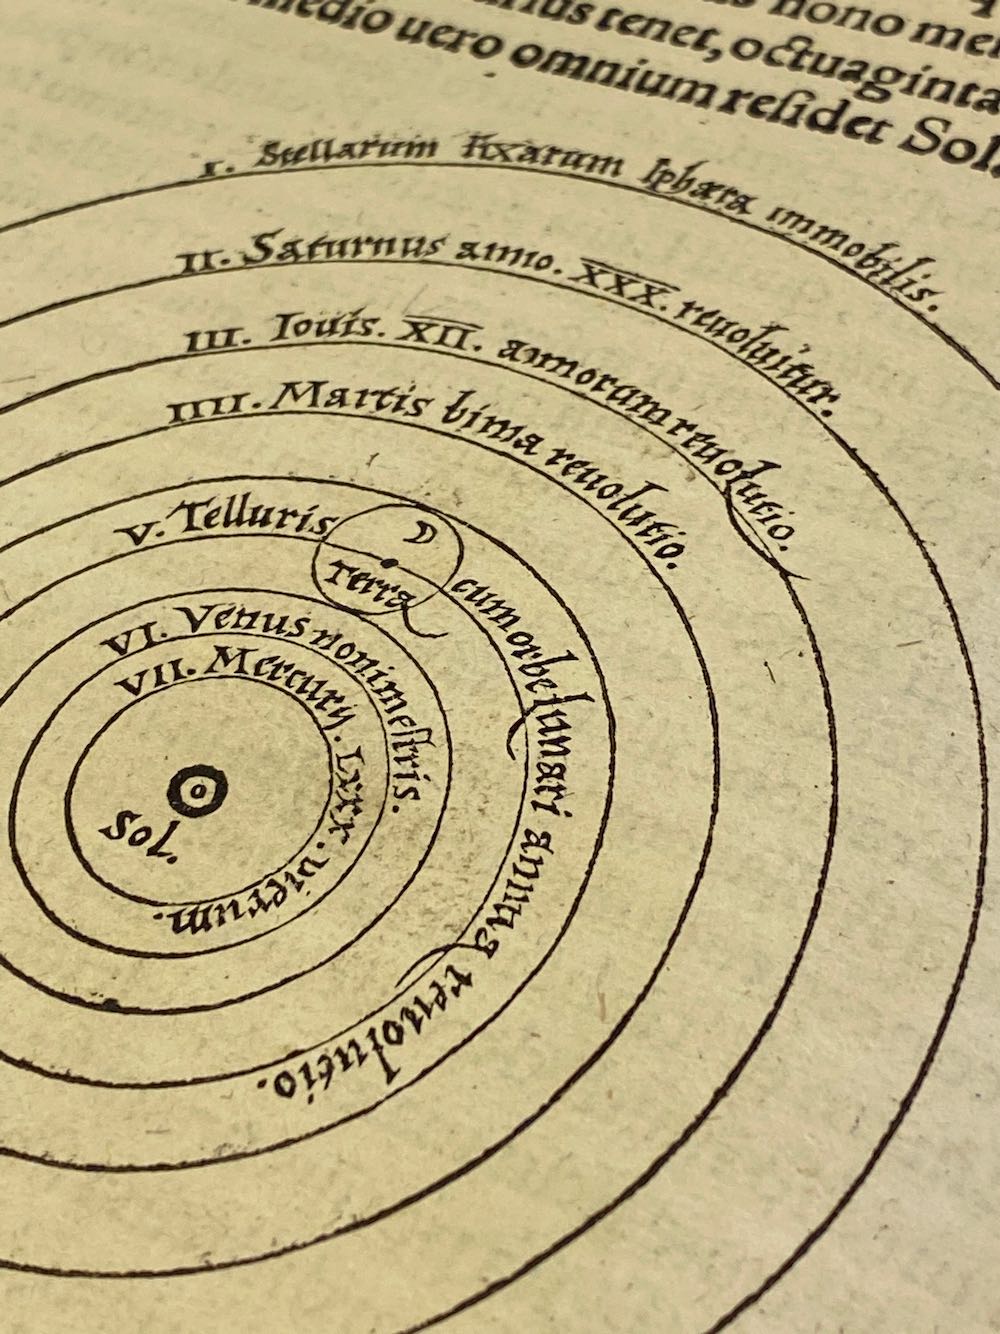 nono
tenet, octuaginta
medio uero omnium reſidet Sol.
I. Stellarum Fixarum ſphæra immobilis.
II. Saturnus anno. XXX. reuoluitur.
III. Iouis. XII. annorum reuolutio.
IIII. Martis bima reuolutio.
V. Telluris cum orbe lunari annua reuolutio.
Terra
VI. Venus nonimeſtris.
VII. Mercurij. LXXX. dierum.
Sol.